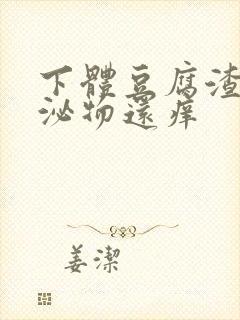 下體豆腐渣
泌物還痒
姜潔